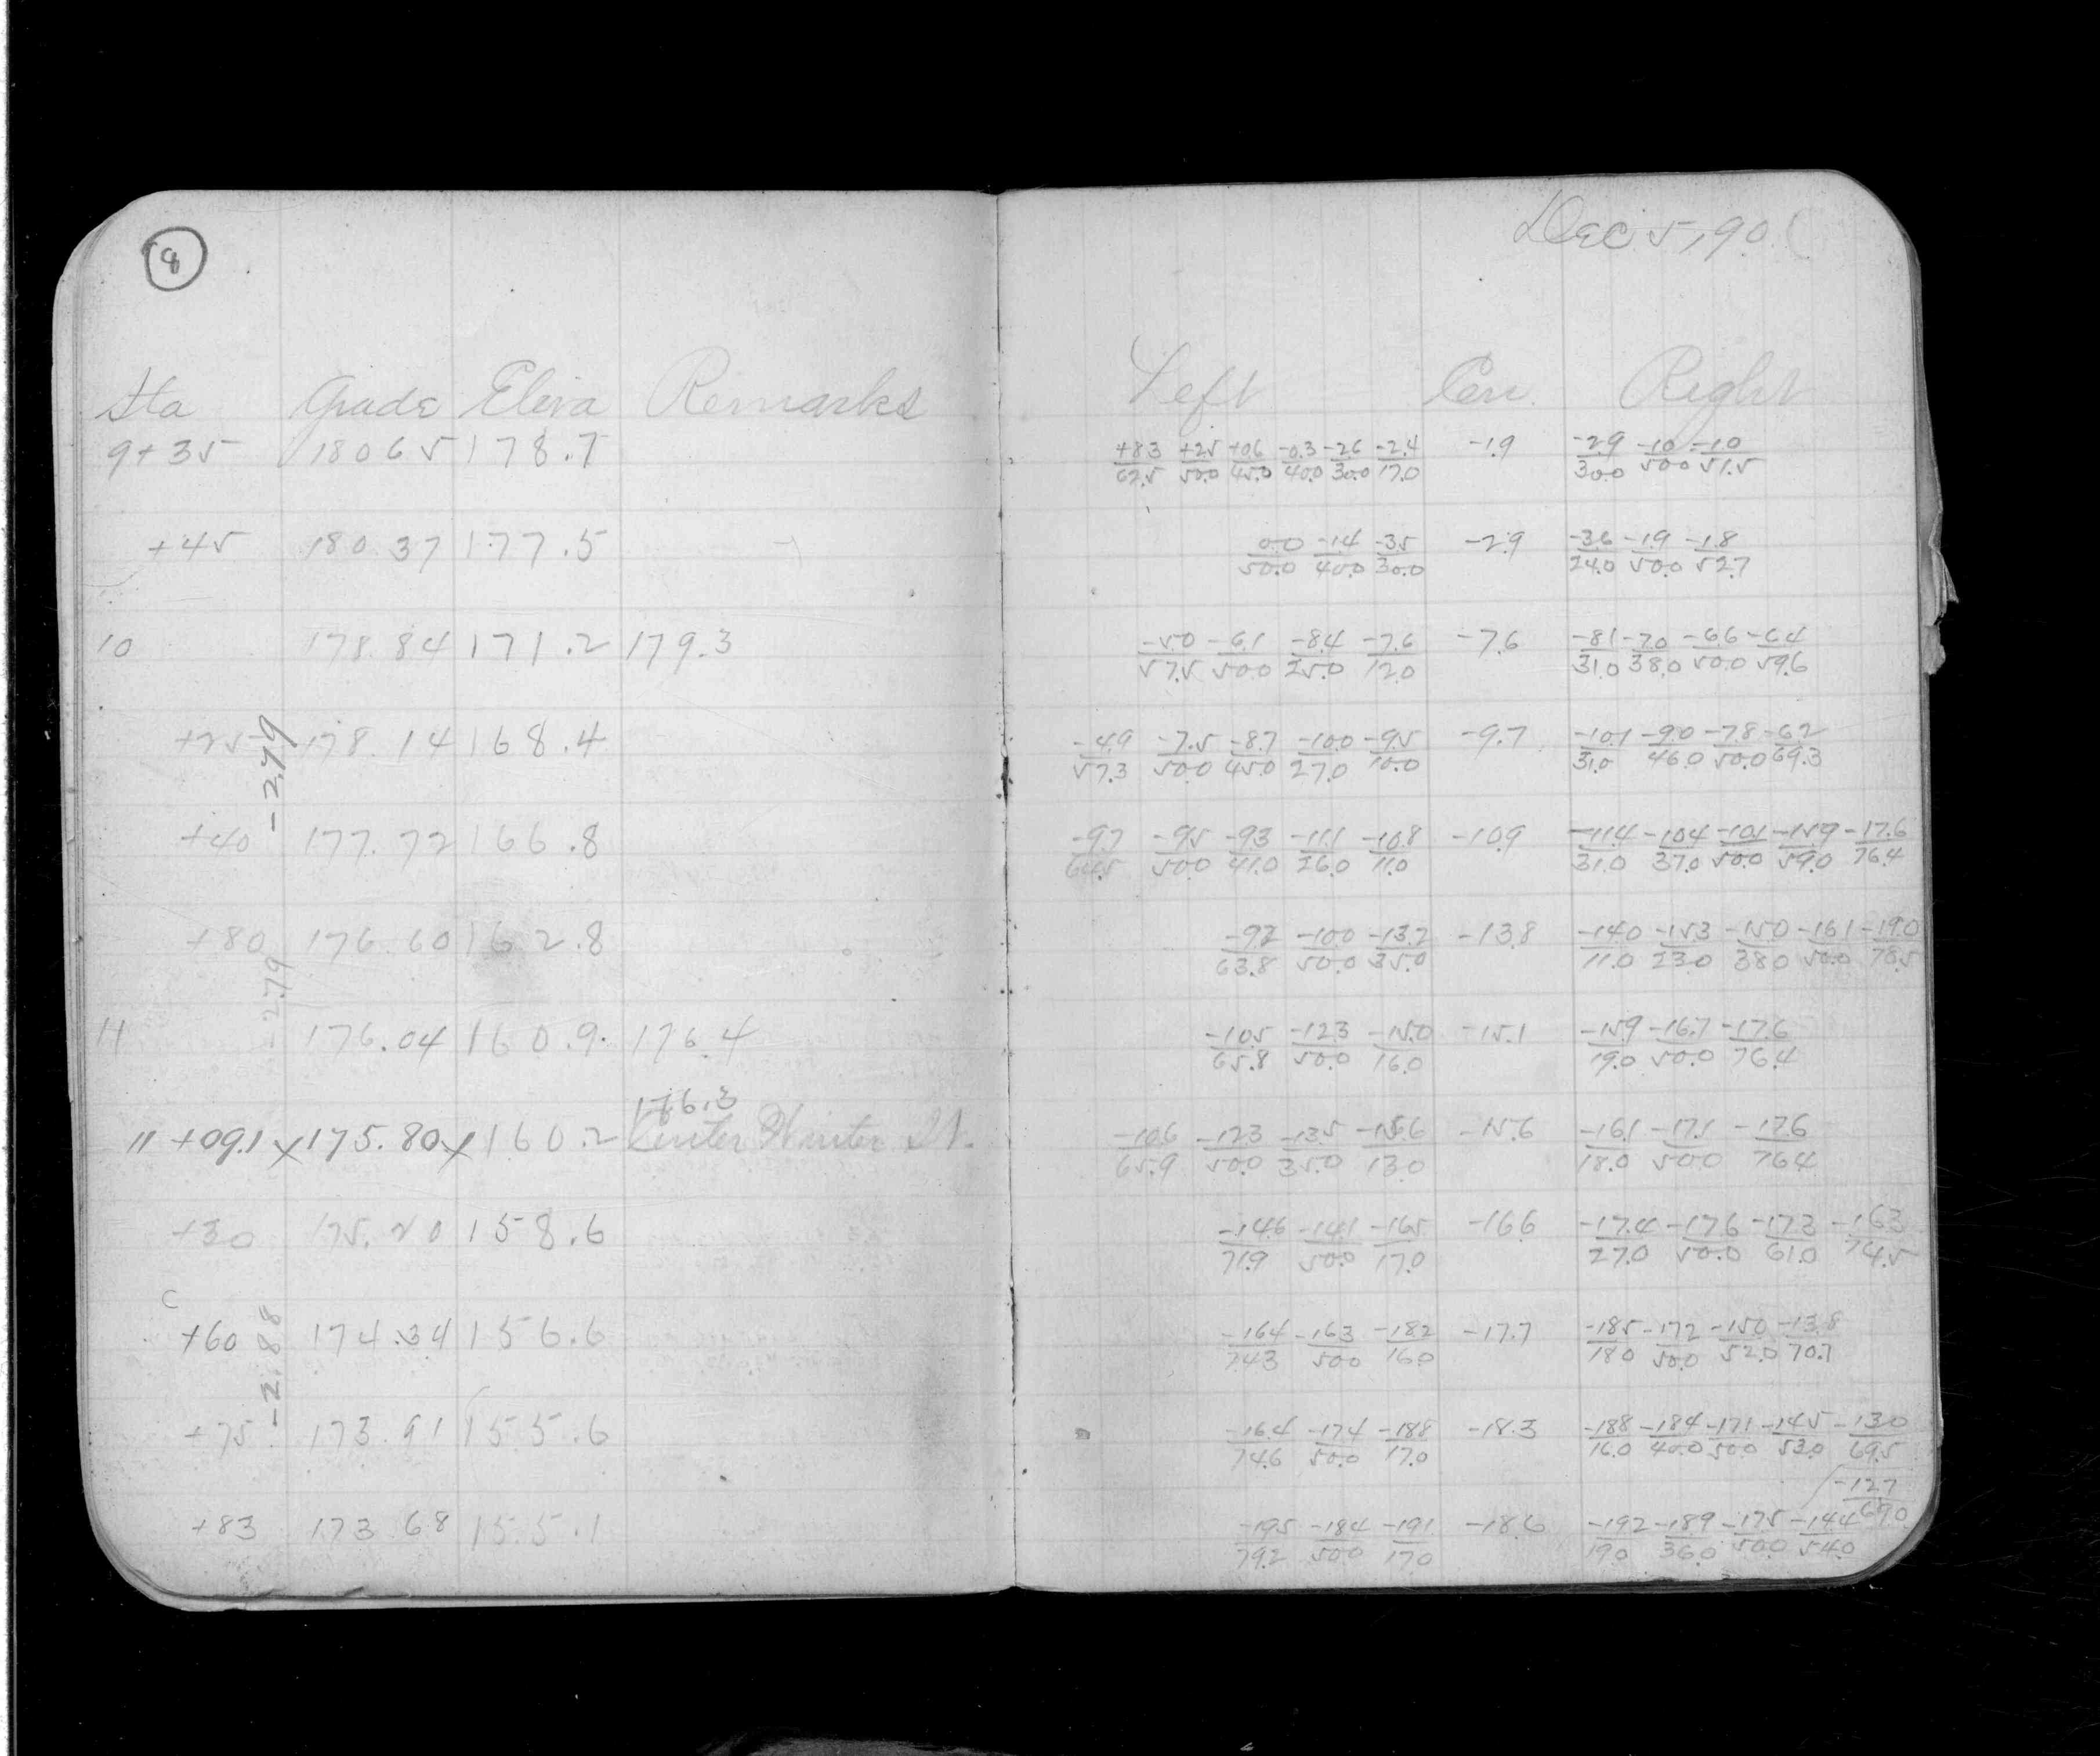 8
Dec 5, 90
Sta Grade Eleva Remarks Left Cen. Right
9+35 180.65 178.7 +8.3/62.5 +2.5/50.0 +0.6/45.0 -0.3/40.0 -2.6/30.0 -2.4/17.0 -1.9 -2.9/30.0 -1.0/50.0 -1.0/51.5
+45 180.37 177.5 0.0/50.0 -1.4/40.0 -3.5/30.0 -2.9 -3.6/24.0 -1.9/50.0 -1.8/52.7
10 178.84 171.2 179.3 -5.0/57.5 -6.1/50.0 -8.4/25.0 -7.6/12.0 -7.6 -8.1/31.0 -7.0/38.0 -6.6/50.0 -6.4/59.6
+25 178.14 168.4 -4.9/57.3 -7.5/50.0 -8.7/45.0 -10.0/27.0 -9.5/10.0 -9.7 -10.1/31.0 -9.0/46.0 -7.8/50.0 -6.2/69.3
-2.79
+40 177.72 166.8 -9.7/64.5 -9.5/50.0 -9.3/41.0 -11.1/26.0 -10.8/11.0 -10.9 -11.4/31.0 -10.4/37.0 -10.1/50.0 -15.9/59.0 -17.6/76.4
+80 176.60 162.8 -9.2/63.8 -10.0/50.0 -13.2/35.0 -13.8 -14.0/11.0 -15.3/23.0 -15.0/38.0 -16.1/50.0 -19.0/78.5
2.79
11 176.04 160.9 176.4 -10.5/65.8 -12.3/50.0 -15.0/16.0 -15.1 -15.9/19.0 -16.7/50.0 -17.6/76.4
176.3
11 +09.1 x 175.80 x 160.2 Center Winter St. -10.6/65.9 -12.3/50.0 -13.5/35.0 -15.6/13.0 -15.6 -16.1/18.0 -17.1/50.0 -17.6/76.4
+30 175.20 158.6 -14.6/71.9 -14.1/50.0 -16.5/17.0 -16.6 -17.4/27.0 -17.6/50.0 -17.3/61.0 -16.3/74.5
C
+60 174.34 156.6 -16.4/74.3 -16.3/50.0 -18.2/16.0 -17.7 -18.5/18.0 -17.2/50.0 -15.0/52.0 -13.8/70.7
-2.88
+75 173.91 155.6 -16.4/74.6 -17.4/50.0 -18.8/17.0 -18.3 -18.8/16.0 -18.4/40.0 -17.1/50.0 -14.5/53.0 -13.0/69.5
-12.7/69.0
+83 173.68 155.1 -19.5/79.2 -18.4/50.0 -19.1/17.0 -18.6 -19.2/19.0 -18.9/36.0 -17.5/50.0 -14.4/54.0